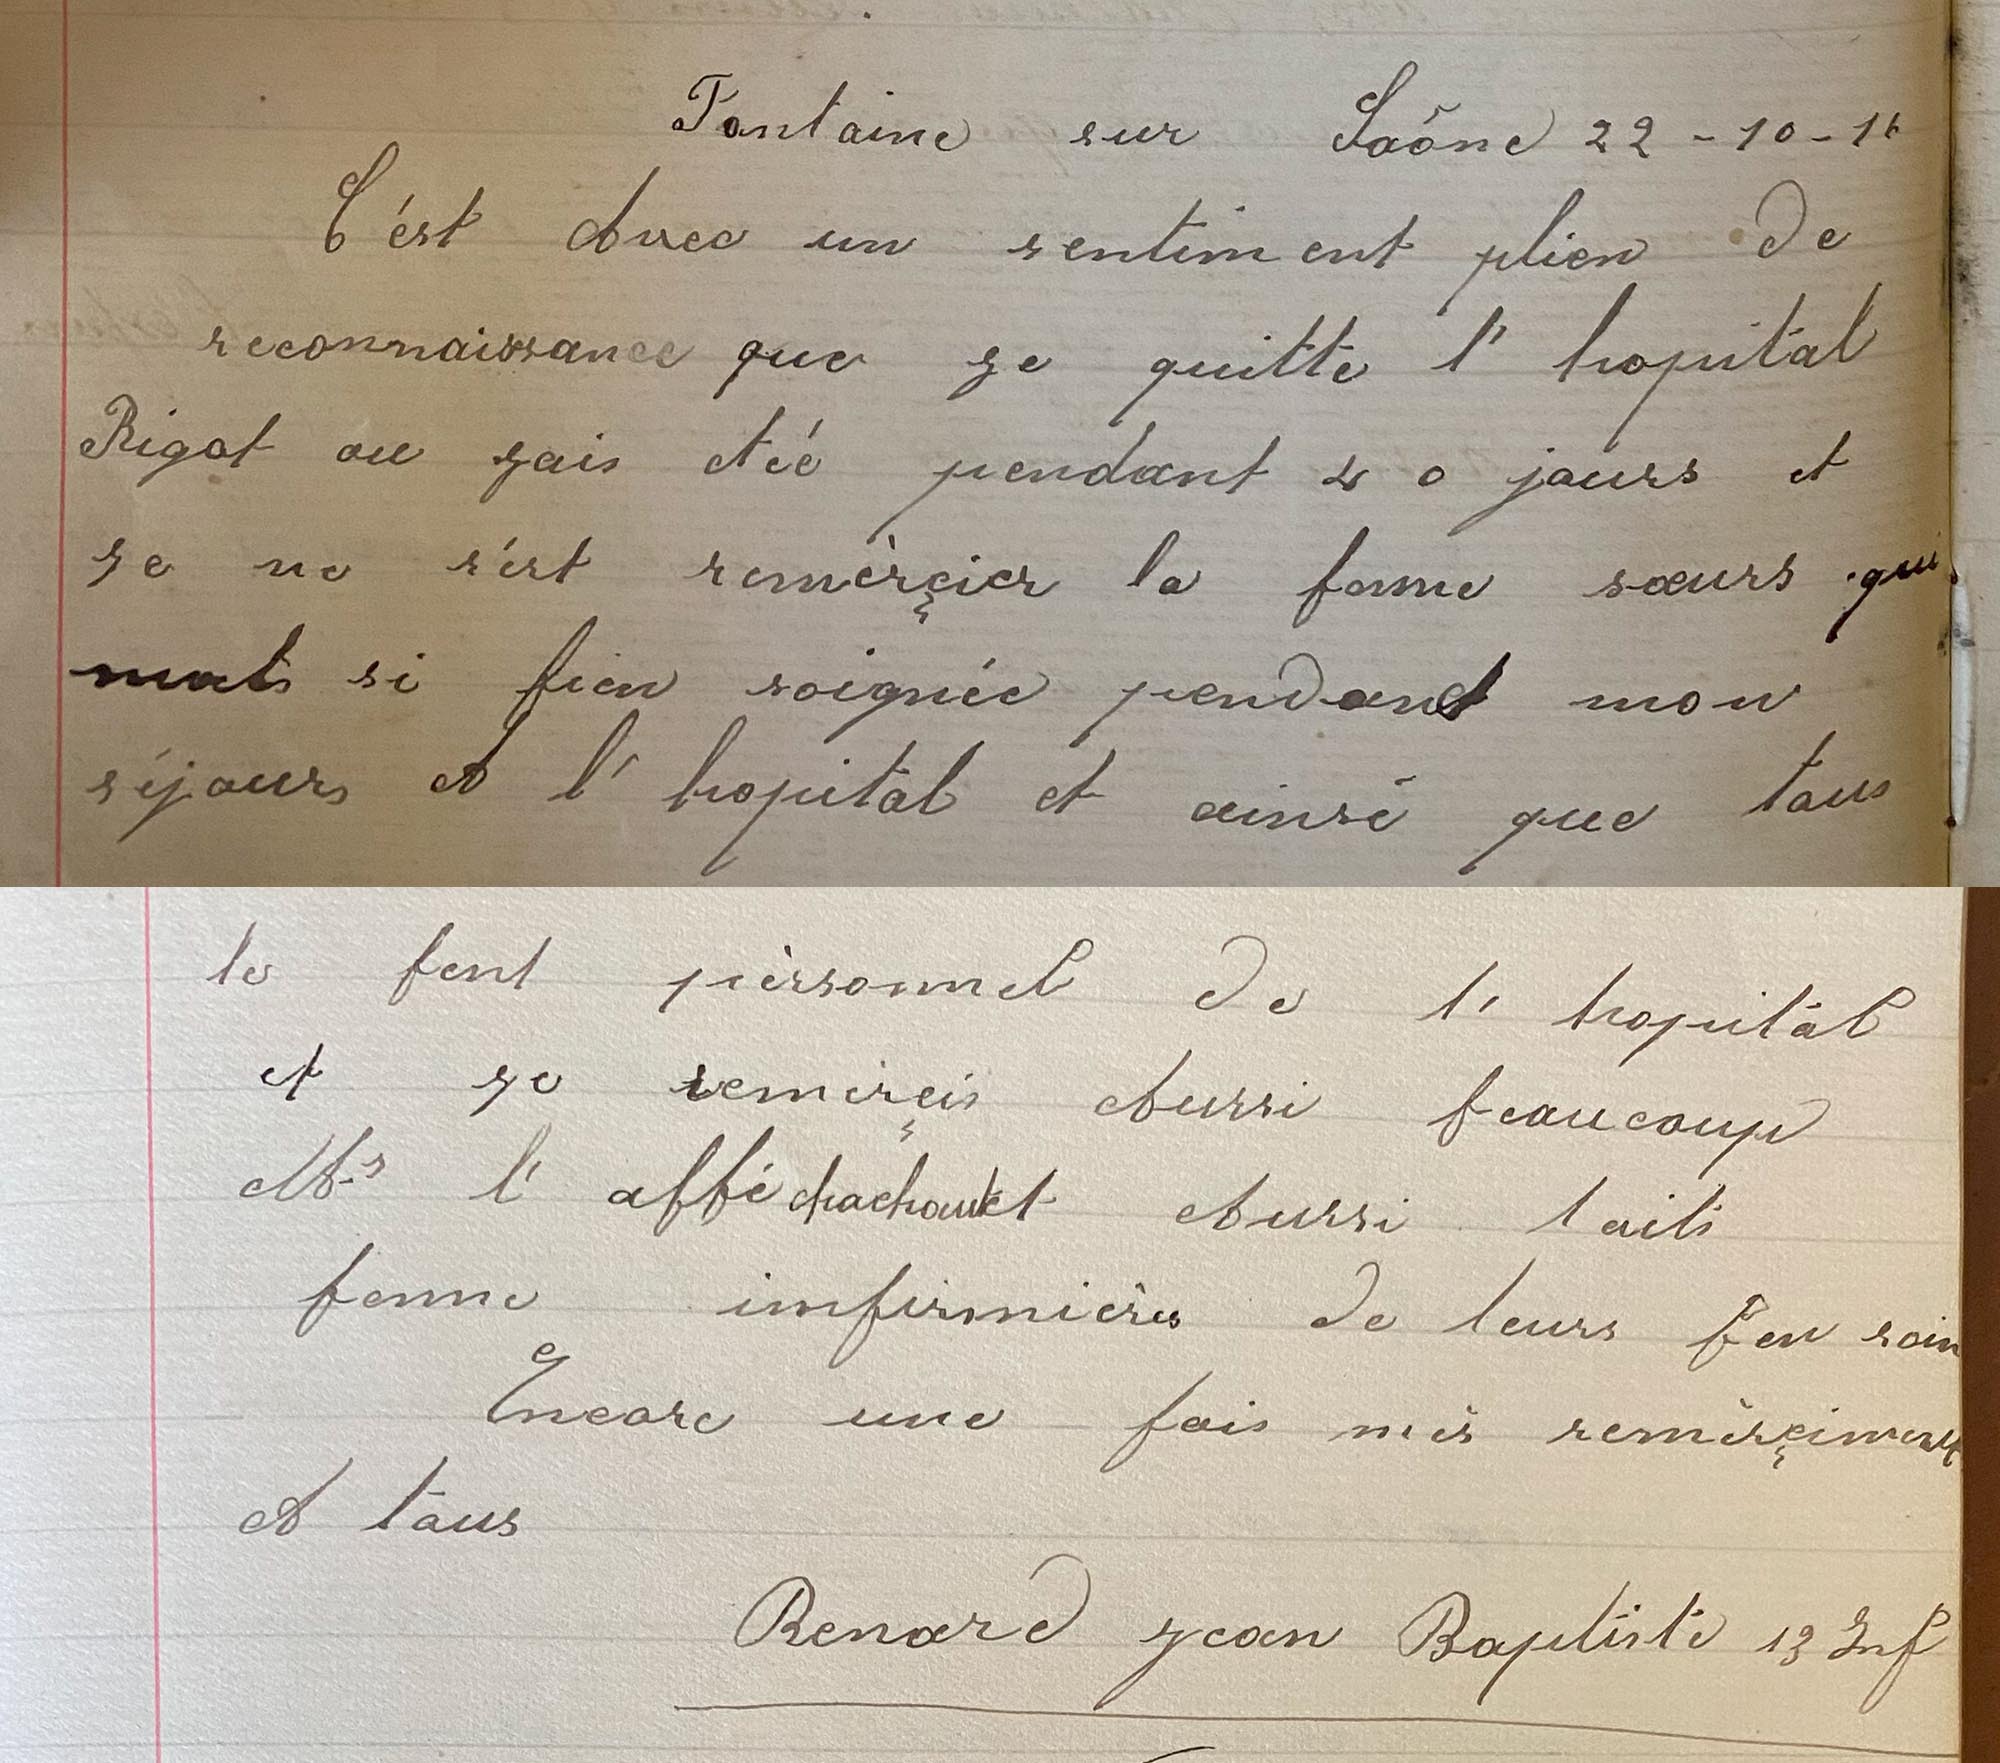 Fontaine sur Saône 22-10-16
C'ést Avec un sentiment plien de
reconnaissance que ge quitte l'hopital
Rigot ou gais étéé pendant 20 jours et
ge ne s'ést remèrçier la fonne sœurs qui
mats si fien soignée pendant mon
séjours A l'hopital et ainsé que tous
le fent pèrsonnel de l'hopital
et ge remèrçis Aussi feaucoup
Mr l'affé chachouet Aussi taits
fonne imfirmières de leurs fen soin
Encore une fois mès remèrçiment
A tous
Renard gean Baptiste 13 Inf